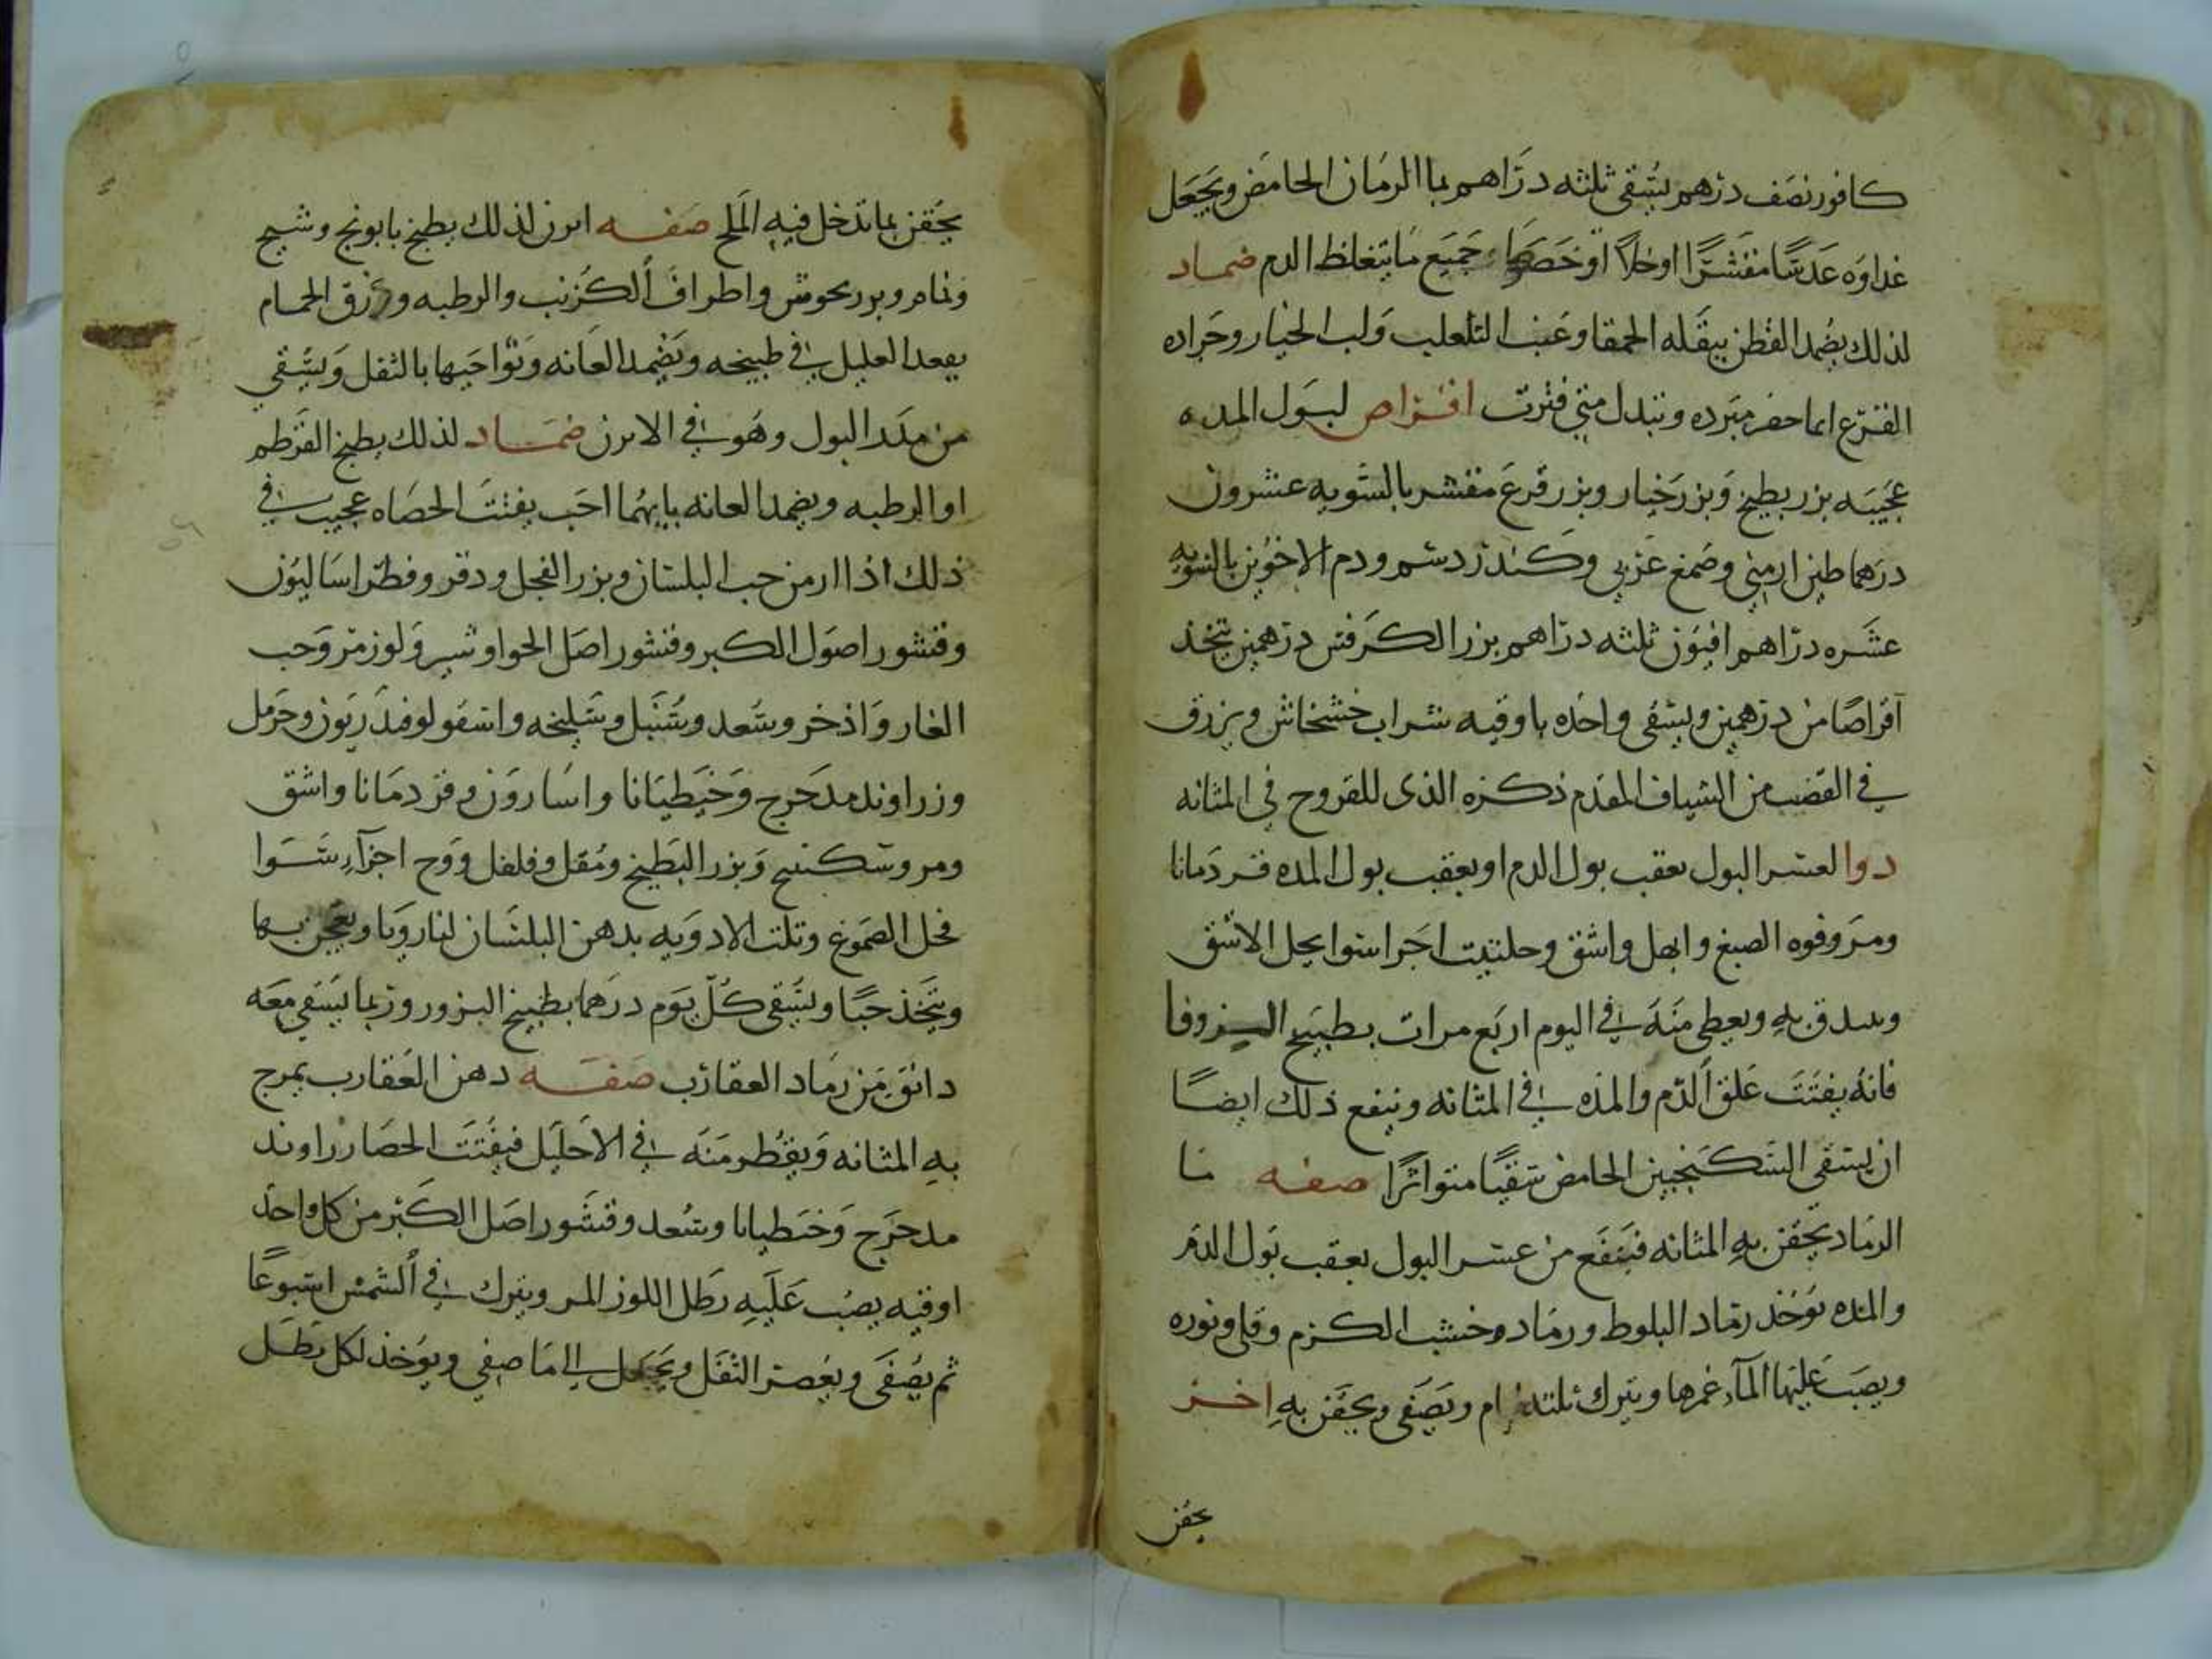 كافور نصف درهم يسقى ثلثه دراهم بما الرمان الحامض ويجعل
غداوه عدسا مقشرا او خلا او جميع ما يغلظ الدم ضماد
لذلك يضمد القطن ببقله الحمقا وعنب الثعلب ولب الخيار وجراده
القرع ايما حضر مبرده وتبدل متى فترت اقراص لبول المده
عجيبه بزر بطيخ وبزر خيار وبزر قرع مقشر بالسويه عشرون
درهما طين ارمني وصمغ عربي وكندر ودم الاخوين بالسويه
عشره دراهم افيون ثلثه دراهم بزر الكرفس درهمين يتخذ
اقراصا من درهمين ويسقى واحده باوقيه شراب خشخاش ويزرق
في القضيب من الشياف المقدم ذكره الذى للقروح في المثانه
دوا لعسر البول بعقب بول الدم او بعقب بول المده قردمانا
ومر وفوه الصبغ وابهل واشق وحلتيت اجرا سوا يحل الاشق
به ويعطى منه في اليوم اربع مرات بطبيخ الزوفا
فانه يفتت علق الدم والمده في المثانه وينفع ذلك ايضا
ان يسقى السكنجبين الحامض سقيا متواترا صفه ما
الرماد يحقن به المثانه فينفع من عسر البول بعقب بول الدم
والمده يوخذ رماد البلوط ورماد وخشب الكرم وقلى ونوره
ويصب عليها المآء غمرها ويترك ثلثه ويصفى ويحقن به اخر
يحقن
يحقن بما تدخل فيه الملح صفه ابزن لذلك يطبخ بابونج وشيح
ونمام واطراف الكرنب والرطبه وزرق الحمام
يقعد العليل في طبيخه ويضمد العانه ونواحيها بالثفل ويسقى
من مدد البول وهو في الابزن ضماد لذلك يطبخ القرطم
او الرطبه ويضمد العانه بايهما احب يفتت الحصاه عجيب في
ذلك حب البلسان وبزر الفجل ودقو وفطراساليون
وقشور اصول الكبر وقشور اصل الجواوشير ولوز مر وحب
الغار واذخر وسعد وسنبل وسليخه وحرمل
وزراوند مدحرج وخيطيانا واسارون وقردمانا واشق
ومر وسكبينج وبزر البطيخ ومقل وفلفل ووج اجزآء سوا
فحل الصموغ وتلت الادويه بدهن البلسان ويعجن بها
ويتخذ حبا ويسقى كل يوم درهما بطبيخ البزور وربما يسقى معه
دانق من رماد العقارب صفه دهن العقارب يمرج
به المثانه ويقطر منه في الاحليل فيفتت الحصا زراوند
مدحرج وخنطيانا وسعد وقشور اصل الكبر من كل واحد
اوقيه يصب عليه رطل اللوز المر ويترك في الشمس اسبوعا
ثم يصفى ويعصر الثفل ويجعل الى ما صفى ويوخذ لكل رطل